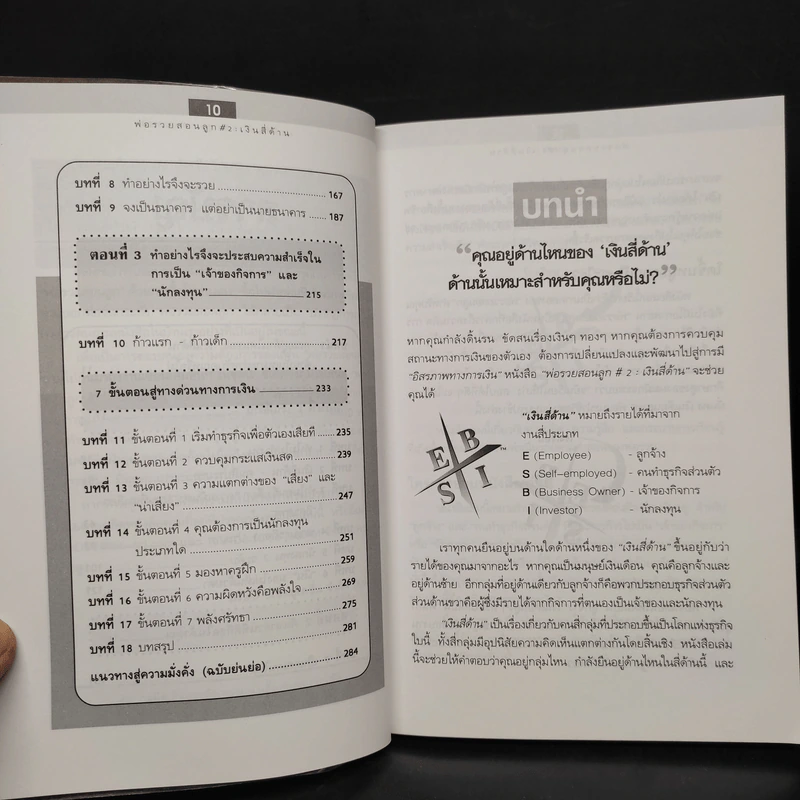 10
พ่อรวยสอนลูก#2:เงินสี่ด้าน
บทที่ 8 ทำอย่างไรจึงจะรวย 167
บทที่ 9 จงเป็นธนาคาร แต่อย่าเป็นนายธนาคาร 187
ตอนที่ 3 ทำอย่างไรจึงจะประสบความสำเร็จใน
การเป็น "เจ้าของกิจการ" และ
"นักลงทุน" 215
บทที่ 10 ก้าวแรก - ก้าวเด็ก 217
7 ขั้นตอนสู่ทางด่วนทางการเงิน 233
บทที่ 11 ขั้นตอนที่ 1 เริ่มทำธุรกิจเพื่อตัวเองเสียที 235
บทที่ 12 ขั้นตอนที่ 2 ควบคุมกระแสเงินสด 239
บทที่ 13 ขั้นตอนที่ 3 ความแตกต่างของ "เสี่ยง" และ
"น่าเสี่ยง" 247
บทที่ 14 ขั้นตอนที่ 4 คุณต้องการเป็นนักลงทุน
ประเภทใด 251
บทที่ 15 ขั้นตอนที่ 5 มองหาครูฝึก 259
บทที่ 16 ขั้นตอนที่ 6 ความผิดหวังคือพลังใจ 269
บทที่ 17 ขั้นตอนที่ 7 พลังศรัทธา 275
บทที่ 18 บทสรุป 281
แนวทางสู่ความมั่งคั่ง (ฉบับย่นย่อ) 284
บทนำ
"คุณอยู่ด้านไหนของ 'เงินสี่ด้าน'
ด้านนั้นเหมาะสำหรับคุณหรือไม่?"
หากคุณกำลังดิ้นรน ขัดสนเรื่องเงินๆ ทองๆ หากคุณต้องการควบคุม
สถานะทางการเงินของตัวเอง ต้องการเปลี่ยนแปลงและพัฒนาไปสู่การมี
"อิสรภาพทางการเงิน" หนังสือ "พ่อรวยสอนลูก # 2 : เงินสี่ด้าน" จะช่วย
คุณได้
"เงินสี่ด้าน" หมายถึงรายได้ที่มาจาก
งานสี่ประเภท
E B
S I
™
E (Employee) - ลูกจ้าง
S (Self-employed) - คนทำธุรกิจส่วนตัว
B (Business Owner) - เจ้าของกิจการ
I (Investor) - นักลงทุน
เราทุกคนยืนอยู่บนด้านใดด้านหนึ่งของ "เงินสี่ด้าน" ขึ้นอยู่กับว่า
รายได้ของคุณมาจากอะไร หากคุณเป็นมนุษย์เงินเดือน คุณคือลูกจ้างและ
อยู่ด้านซ้าย อีกกลุ่มที่อยู่ด้านเดียวกับลูกจ้างก็คือพวกประกอบธุรกิจส่วนตัว
ส่วนด้านขวาคือผู้ซึ่งมีรายได้จากกิจการที่ตนเองเป็นเจ้าของและนักลงทุน
"เงินสี่ด้าน" เป็นเรื่องเกี่ยวกับคนสี่กลุ่มที่ประกอบขึ้นเป็นโลกแห่งธุรกิจ
ใบนี้ ทั้งสี่กลุ่มมีอุปนิสัยความคิดเห็นแตกต่างกันโดยสิ้นเชิง หนังสือเล่ม
นี้จะช่วยให้คำตอบว่าคุณอยู่กลุ่มไหน กำลังยืนอยู่ด้านไหนในสี่ด้านนี้ และ